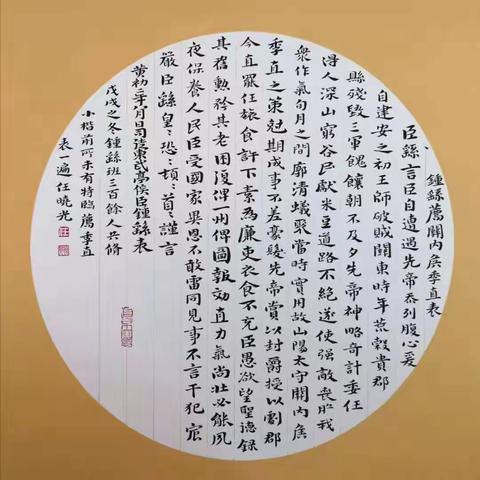 鍾繇薦關內侯季直表
臣繇言臣自遭遇先帝忝列腹心爰
自建安之初王師破賊關東時年荒穀貴郡
縣殘毀三軍餽饟朝不及夕先帝神略奇計委任
得人深山窮谷民獻米豆道路不絕遂使強敵喪膽我
衆作氣旬月之間廓清蟻聚當時實用故山陽太守關內侯
季直之策剋期成事不差豪髮先帝賞以封爵授以劇郡
今直罷任旅食許下素為廉吏衣食不充臣愚欲望聖德錄
其舊勳矜其老困復俾一州俾圖報效直力氣尚壯必能夙
夜保養人民臣受國家異恩不敢雷同見事不言干犯宸
嚴臣繇皇〻恐〻頓〻首〻謹言
黃初二年八月日司徒東武亭侯臣鍾繇表
戊戌之冬鍾繇班三百餘人共修
小楷前所未有特臨薦季直
表一遍任曉光